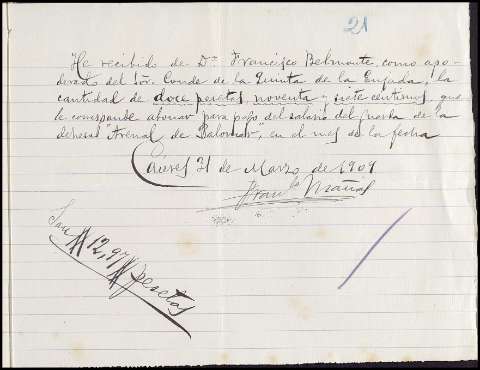 21
He recibido de Dn. Francisco Belmonte, como apo-
derado del Sôr. Conde de la Quinta de la Enjarada, la
cantidad de doce pesetas noventa y siete centimos, que
le corresponde abonar para pago del salario del guarda de la
dehesa "Arenal de Balonas", en el mes de la fecha
Cáceres 31 de Marzo de 1909
Franco Mañas
Son # 12,97 # pesetas